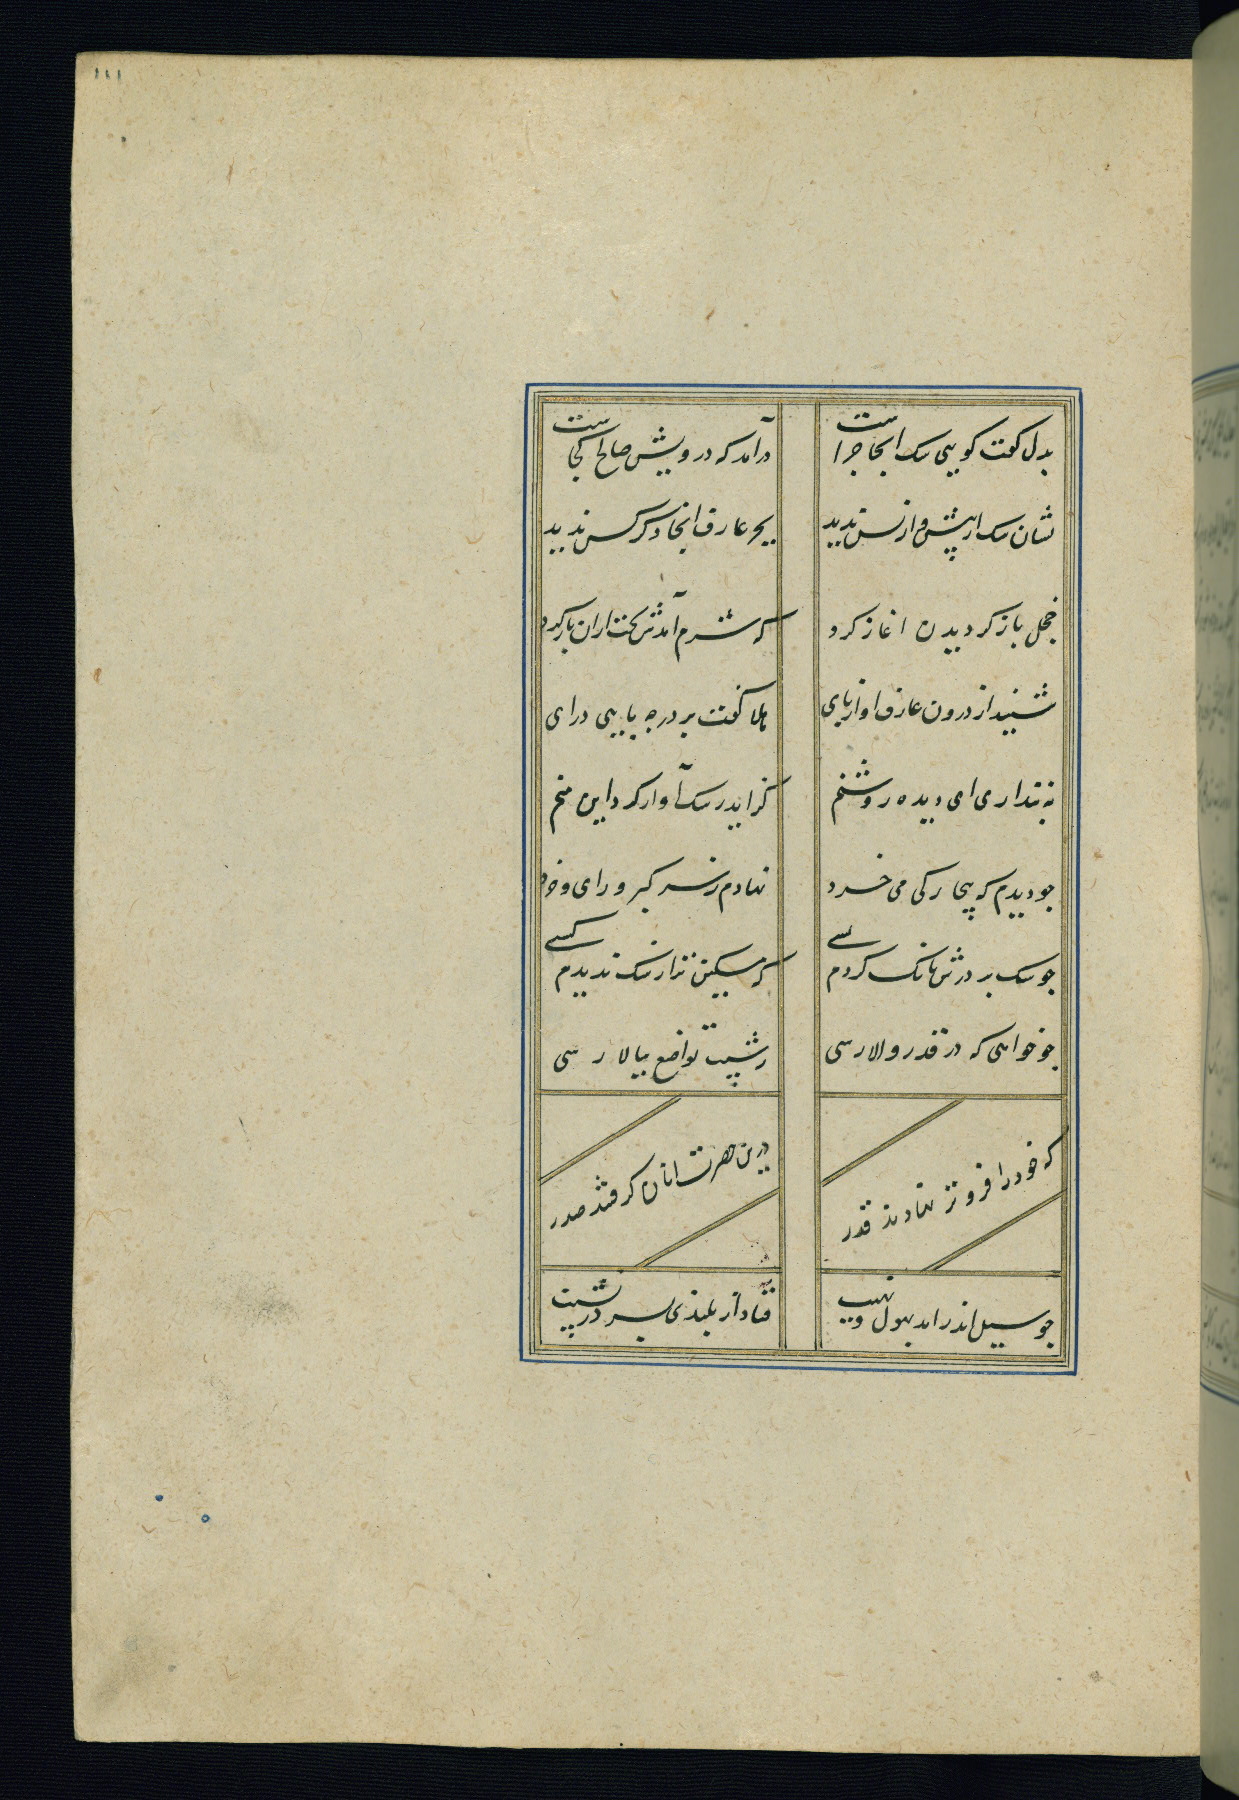 ۱۱۱
بدل کفت کویی سک اینجا چراست
درآمد که درویش صالح کجاست
نشان سک از پیش و از پس ندید
بجز عارف آنجا دکر کس ندید
خجل باز کردیدن اغاز کرد
که شرم آمدش بحث آن راز کرد
شنید از درون عارف اواز پای
هلا کفت بر در چه پایی درای
نه پنداری ای دیده روشنم
کز ایدر سک آواز کرد این منم
چو دیدم که بیچارکی می خرد
نهادم ز سر کبر و رای و خرد
چو سک بر درش بانک کردم بسی
که مسکین تر از سک ندیدم کسی
چو خواهی که در قدر والا رسی
ز شیب تواضع ببالا رسی
درین حضرت آنان کرفتند صدر
که خود را فروتر نهادند قدر
چو سیل اندر امد بهول و نهیب
فتاد از بلندی بسر در نشیب